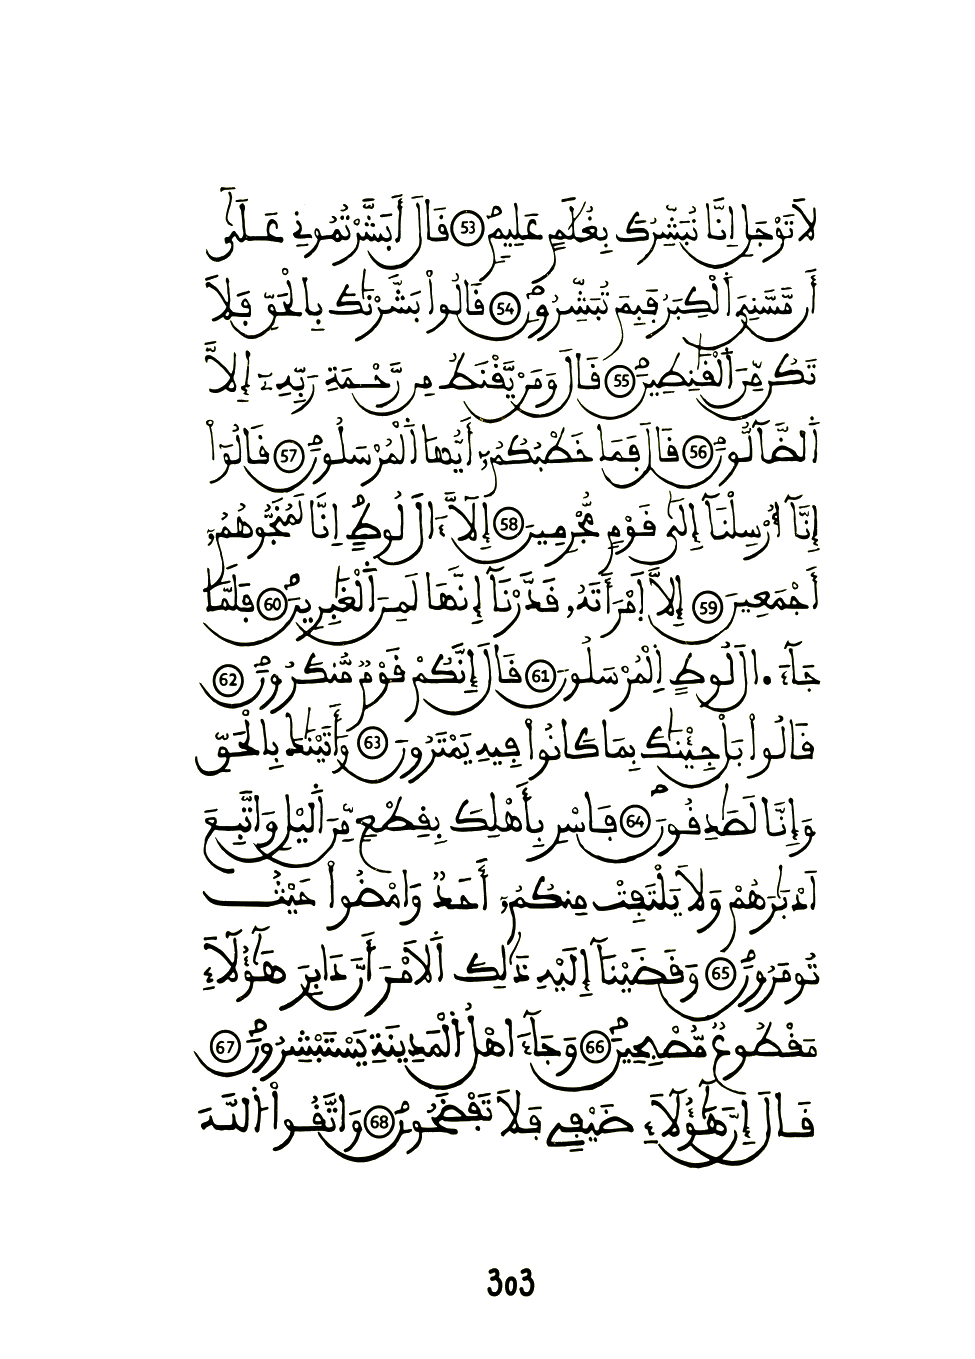 لَا تَوْجَلِ اِنَّا نُبَشِّرُكَ بِغُلَٰمٍ عَلِيمٍ 53 قَالَ أَبَشَّرْتُمُونِي عَلَىٰٓ
أَن مَّسَّنِيَ اَ۬لْكِبَرُ فَبِمَ تُبَشِّرُونِ 54 قَالُواْ بَشَّرْنَٰكَ بِالْحَقِّ فَلَا
تَكُن مِّنَ اَ۬لْقَٰنِطِينَ 55 قَالَ وَمَنْ يَّقْنَطُ مِن رَّحْمَةِ رَبِّهِۦٓ إِلَّا
اَ۬لضَّآلُّونَ 56 قَالَ فَمَا خَطْبُكُمُۥٓ أَيُّهَا اَ۬لْمُرْسَلُونَ 57 قَالُوٓاْ
إِنَّآ أُرْسِلْنَآ إِلَىٰ قَوْمٍ مُّجْرِمِينَ 58 إِلَّآ ءَالَ لُوطٍ اِنَّا لَمُنَجُّوهُمُۥٓ
أَجْمَعِينَ 59 إِلَّا اَ۪مْرَأَتَهُۥ قَدَّرْنَآ إِنَّهَا لَمِنَ اَ۬لْغَٰبِرِينَ 60 فَلَمَّا
جَآءَ الَ لُوطٍ اِ۬لْمُرْسَلُونَ 61 قَالَ إِنَّكُمْ قَوْمٌ مُّنكَرُونَ 62
قَالُواْ بَلْ جِئْنَٰكَ بِمَا كَانُواْ فِيهِ يَمْتَرُونَ 63 وَأَتَيْنَٰكَ بِالْحَقِّ
وَإِنَّا لَصَٰدِقُونَ 64 فَاسْرِ بِأَهْلِكَ بِقِطْعٍ مِّنَ اَ۬ليْلِ وَاتَّبِعَ
اَدْبَٰرَهُمْ وَلَا يَلْتَفِتْ مِنكُمُۥٓ أَحَدٌ وَامْضُواْ حَيْثُ
تُومَرُونَ 65 وَقَضَيْنَآ إِلَيْهِ ذَٰلِكَ اَ۬لَامْرَ أَنَّ دَابِرَ هَٰٓؤُلَآءِ
مَقْطُوعٌ مُّصْبِحِينَ 66 وَجَآءَ اهْلُ اُ۬لْمَدِينَةِ يَسْتَبْشِرُونَ 67
قَالَ إِنَّ هَٰٓؤُلَآءِ ضَيْفِي فَلَا تَفْضَحُونِ 68 وَاتَّقُواْ اُ۬للَّهَ
303